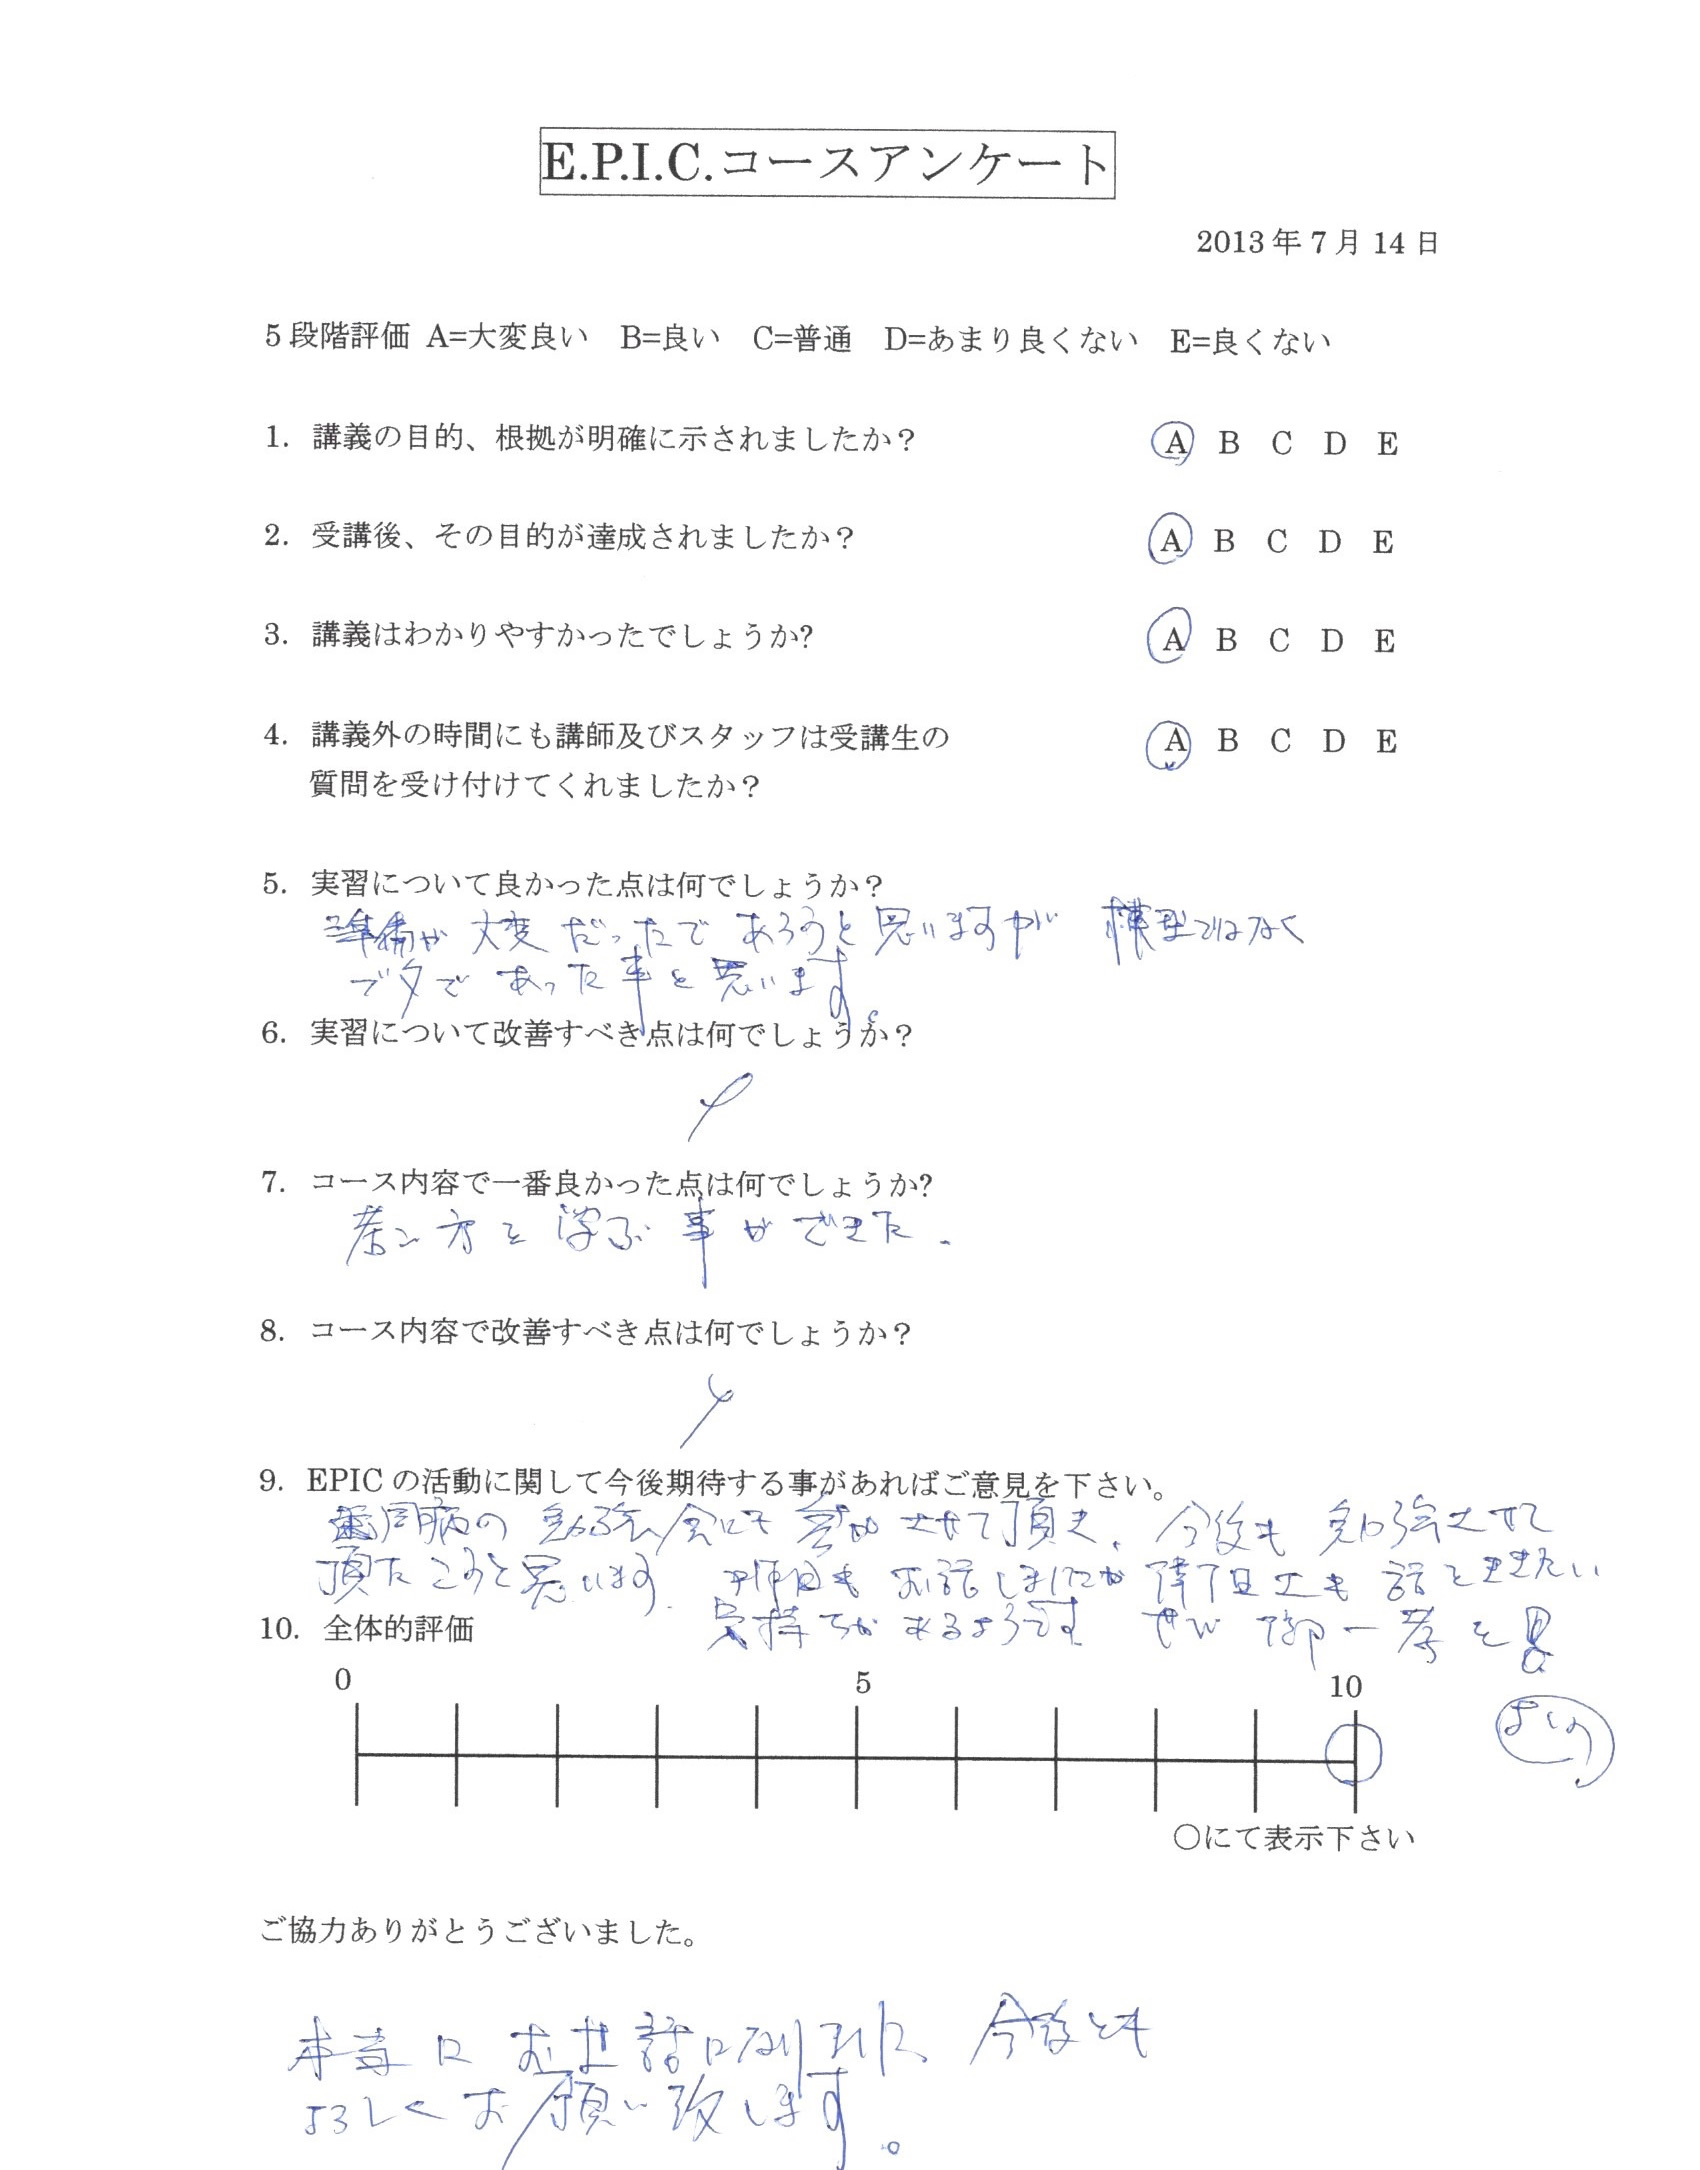 E.P.I.C.コースアンケート
2013年7月14日
5段階評価 A=大変良い B=良い C=普通 D=あまり良くない E=良くない
1. 講義の目的、根拠が明確に示されましたか？ A B C D E
2. 受講後、その目的が達成されましたか？ A B C D E
3. 講義はわかりやすかったでしょうか? A B C D E
4. 講義外の時間にも講師及びスタッフは受講生の A B C D E
質問を受け付けてくれましたか？
5. 実習について良かった点は何でしょうか？
準備が大変だったであろうと思いますが 模型ではなく
ブタであった事と思います。
6. 実習について改善すべき点は何でしょうか？
7. コース内容で一番良かった点は何でしょうか?
考え方を学ぶ事ができた.
8. コース内容で改善すべき点は何でしょうか？
9. EPICの活動に関して今後期待する事があればご意見を下さい。
歯周病の勉強会にも参加させて頂き、今後も勉強させて
頂たこうと思います. 昨日もお話しましたが 技工士も話をききたい
気持ちがあるようです ぜひ御一考を
10. 全体的評価
0 5 10
よしの
○にて表示下さい
ご協力ありがとうございました。
本当にお世話になりました、今後とも
よろしくお願い致します。